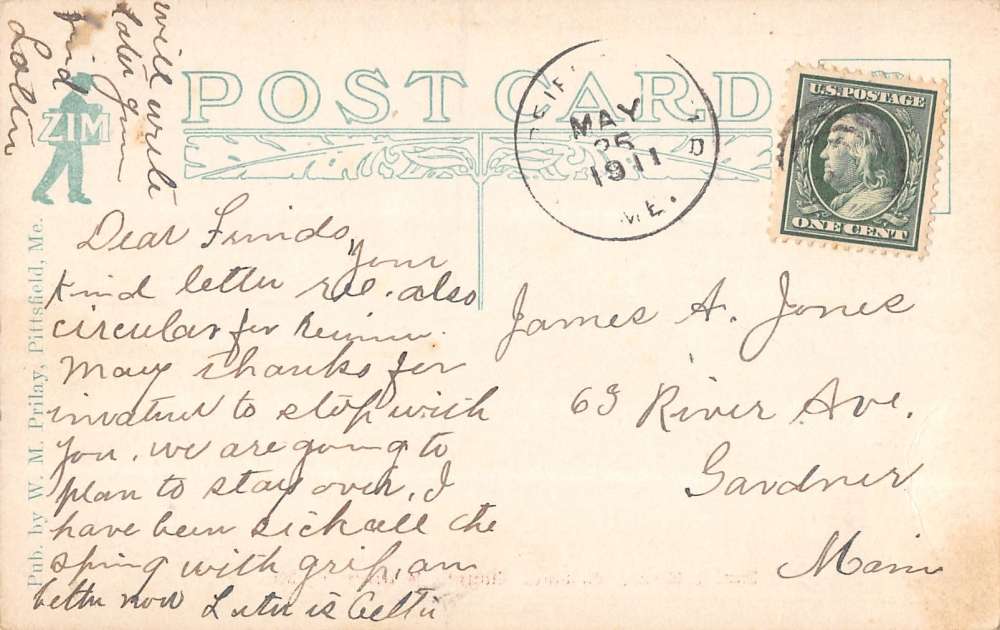 POST CARD
ZIM
MAY
1911
ME.
U.S. POSTAGE
ONE CENT
Dear Friends,
Your
kind letter rec. also
circular for
Many thanks for
to stop with
you. we are going to
plan to stay over. I
have been sick all the
spring with grip, am
better now
will write
later from
James A. Jones
63 River Ave.
Gardner
Main
Pub. by W. M. Prilay, Pittsfield, Me.